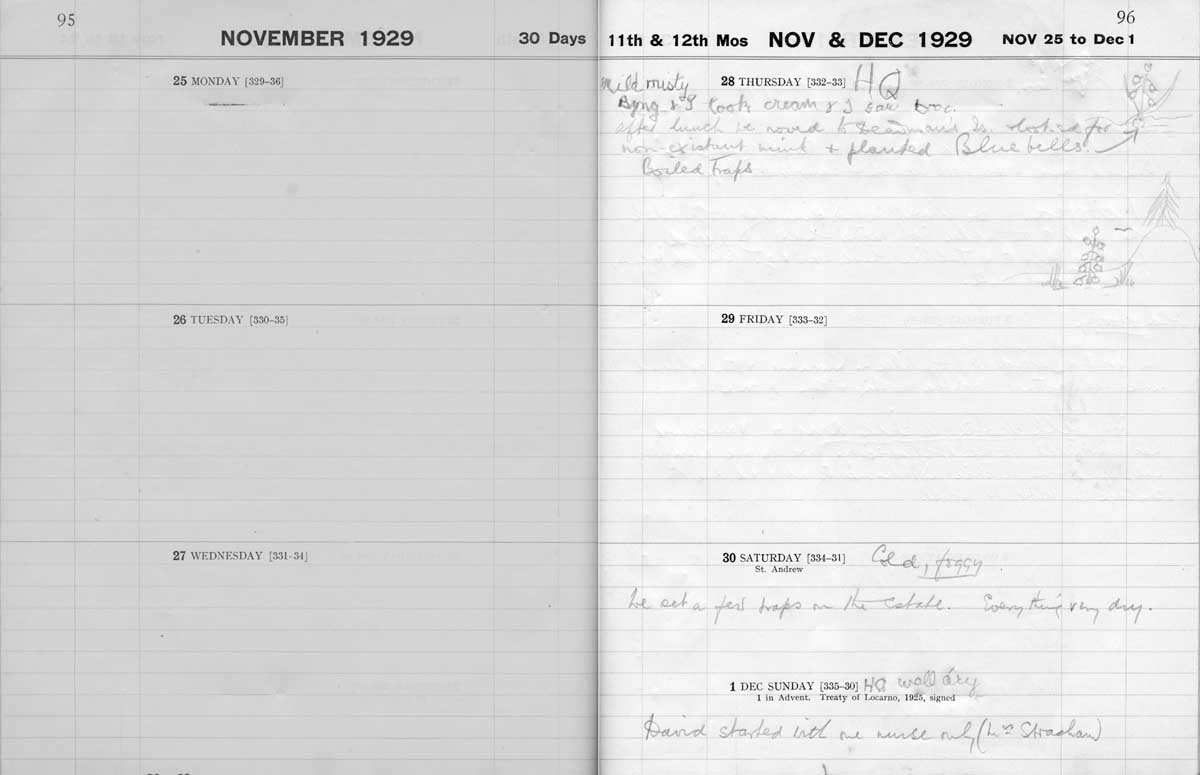 95
NOVEMBER 1929 30 Days
25 MONDAY [329-36]
26 TUESDAY [330-35]
27 WEDNESDAY [331-34]
96
11th & 12th Mos NOV & DEC 1929 NOV 25 to Dec 1
28 THURSDAY [332-33] HQ
Mild misty
Byng & I took cream & I saw
after lunch we moved to Deadman's Is. looked for
non-existant mint & planted Bluebells.
Boiled Traps
29 FRIDAY [333-32]
30 SATURDAY [334-31] Cold, foggy
St. Andrew
We set a few traps on the estate. Everything very dry.
1 DEC SUNDAY [335-30] HQ well dry
1 in Advent. Treaty of Locarno, 1925, signed
David started with one nurse only (Mrs Strachan)